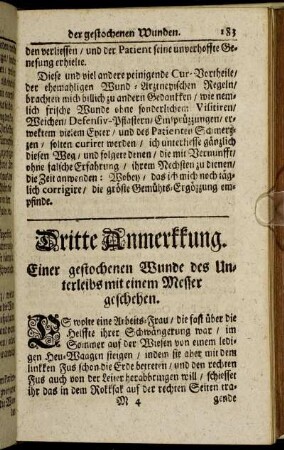 der gestochenen Wunden. 183
den verliessen / und der Patient seine unverhoffte Ge-
nesung erhielte.
Diese und viel andere peinigende Cur-Vortheile/
der ehemahligen Wund-Artzneyischen Regeln
brachten mich billich zu andern Gedancken / wie nem-
lich frische Wunde ohne sonderlichem Visitiren/
Weichen/ Defensiv-Pflastern/ Einsprützungen/ er-
wektem vielem Eyter / und des Patienten Schmert-
zen / solten curirer werden / ich unterliesse gäntzlich
diesen Weg / und folgete denen / die mit Vernunfft
ohne falsche Erfahrung / ihrem Nechsten zu dienen/
die Zeit anwenden: Wobey / das ich mich noch täg-
lich corrigire/ die gröste Gemühts-Ergötzung em-
pfinde.
Dritte Anmerkkung.
Einer gestochenen Wunde des Un-
terleibs mit einem Messer
geschehen.
ES wolte eine Arbeits-Frau / die fast über die
Helffte ihrer Schwängerung war / im
Sommer auf der Wiesen von einem ledi-
gen Heu-Waagen steigen / indem sie aber mit dem
linkken Fus schon die Erde betreten / und den rechten
Fus auch von der Leiter herabbringen will / schiesset
ihr das in dem Rokksak auf der rechten Seiten tra-
M 4 gende